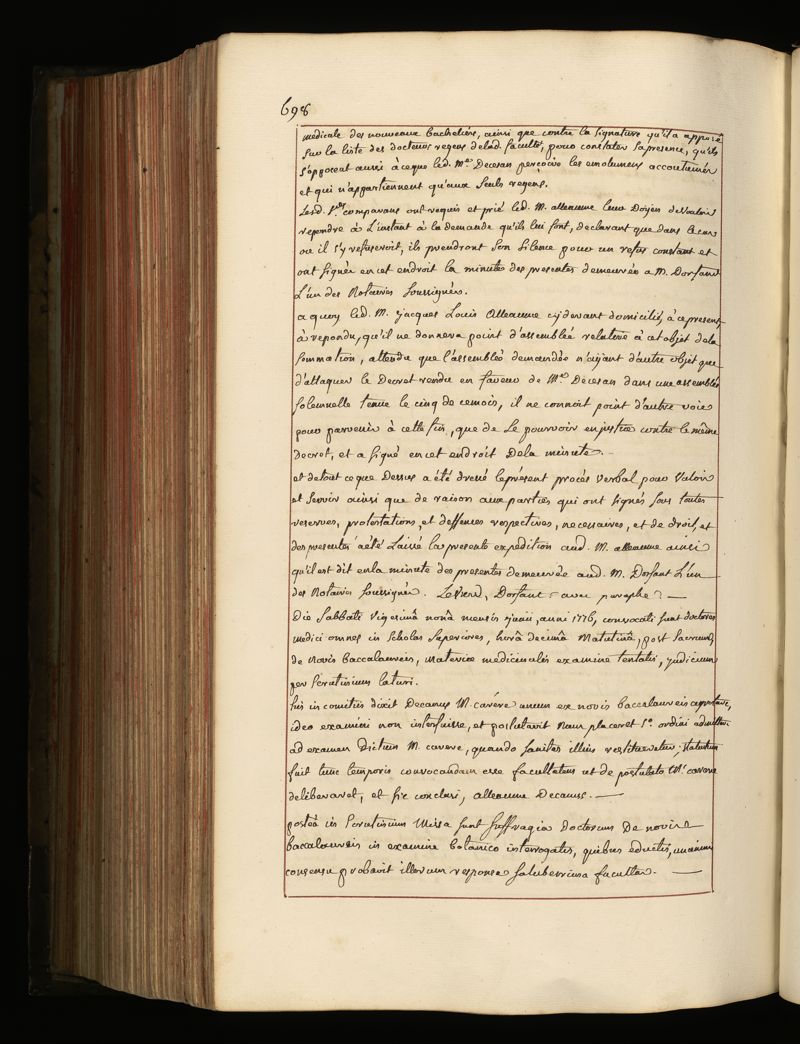 698
medicale des nouveaux bacheliers, ainsi que contre la signature qu'il a apposé
sur la liste des docteurs regens de lad. faculté, pour constater sa presence, qu'ils
s'opposent aussi à ce que led. Me. Decesan perçoive les emolumens accoutumés
et qui n'appartiennent qu'aux seuls regens.
Lesd. Srs. comparans ont requis et prié led. M. alleaume leur Doyen de vouloir
repondre à L'instant à la demande qu'ils lui font, declarant que dans le cas
ou il s'y refuseroit, ils prendront son silence pour un refus constant et
ont signés en cet endroit la minute des presentes demeurées a M. Dorfant
L'un des Notaires soussignés.
a quoy led. M. jacques Louis Alleaume cy devant domicilié, à ce present,
à repondu, qu'il ne donnera point d'assemblée relative à cet objet de la
sommation, attendu que l'assemblée demandée n'aÿant d'autre objet que
d'attaquer le Decret rendu en faveur de Me. Decesan dans une assemblée
solemnelle tenue le cinq de ce mois, il ne connoit point d'autre voie
pour parvenir à cette fin, que de se pourvoir en justice contre le même
decret, et a signé en cet endroit De la minute. -
et de tout ce que Dessus a été dressé le présent procès verbal pour Valoir
et servir ainsi que de raison aux parties qui ont signés sous toutes
reserves, protestations, et deffenses respectives, necessaires, et de droit, et
des presentes a été Laissé la presente expedition aud. M. alleaume ainsi
qu'il est dit en la minute des presentes demeurée aud. M. Dorfant L'un
des Notaires soussignés. Dorfant avec paraphe
Die Sabbati Vigesimâ nonâ mensis junii, anni 1776, convocati sunt doctores
medici omnes in scholas superiores, horâ decimâ Matutinâ, post sacrum,
de Novis Baccalaureis, materiæ medicinalis examine tentatis, judicium
per scrutinium laturi.
his in comitiis dixit Decanus M. cavére unum ex novis baccalaureis ægrotare,
ideo examini non interfuisse, et postulavit Num placeret So. ordini admittere
ad examen Dictum M. cavere, quando sanitas illius restitueretur. statutum
fuit tunc temporis convocandam esse facultatem ut de postulato Mi. cavere
deliberaret, et sic conclusi, alleaume Decanus. —
posteà in scrutinium Missa sunt suffragia doctorum De novis
baccalaureis in examine botanico interrogatis, quibus eductis, unanimi
consensu probavit illorum responsa saluberrima facultas. —